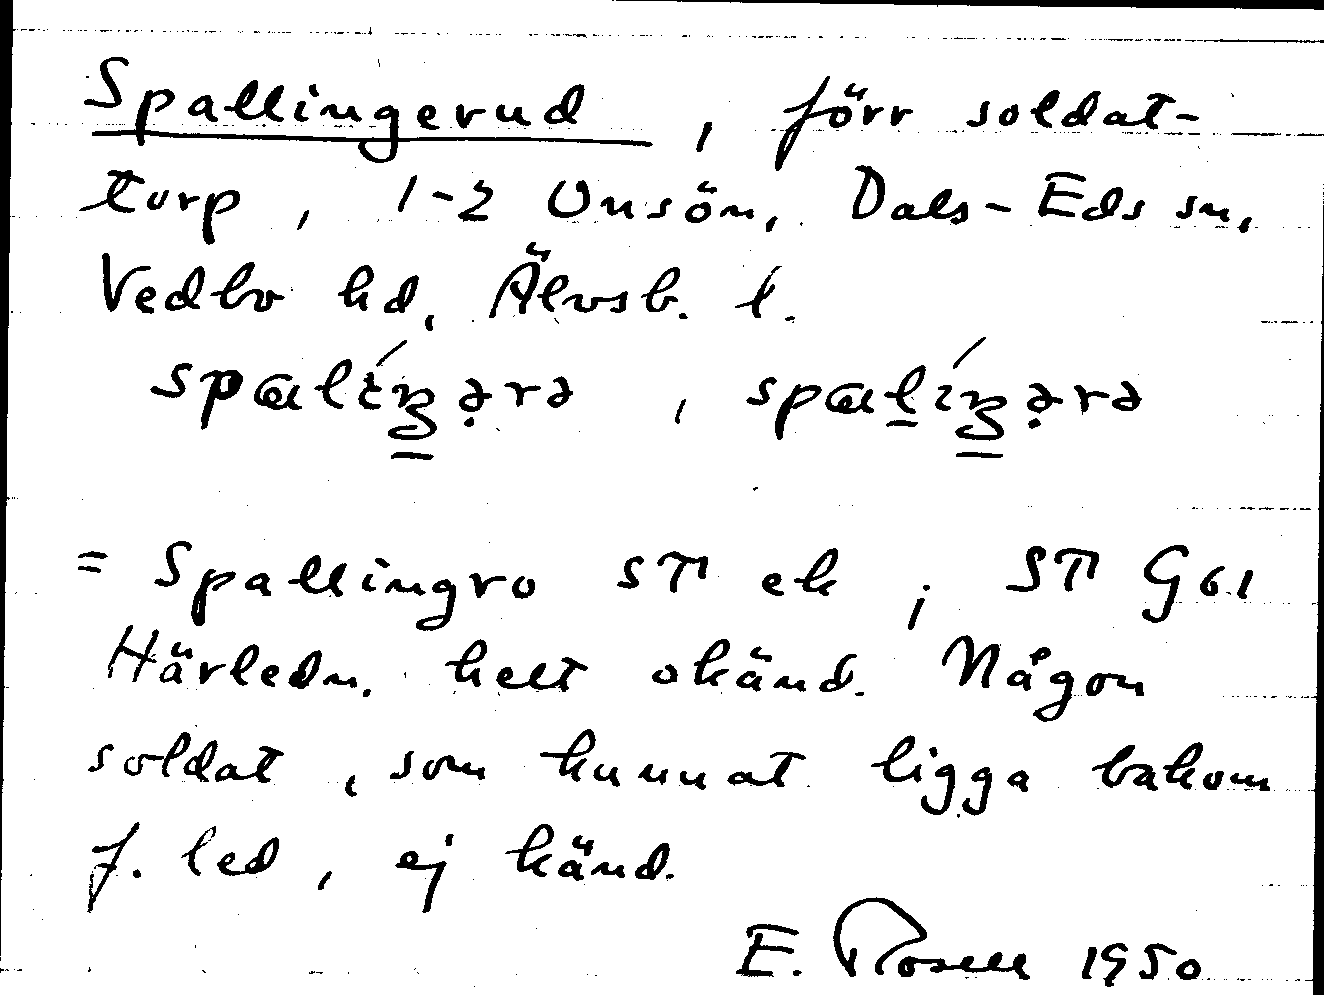 Spallingerud, förr soldat-
torp, 1-2 Onsön, Dals-Eds sn,
Vedbo hd, Älvsb. l.
= Spallingro ST ek; ST G61
Härledn. helt okänd. Någon
soldat, som kunnat ligga bakom
f. led, ej känd.
E. Rosell 1950